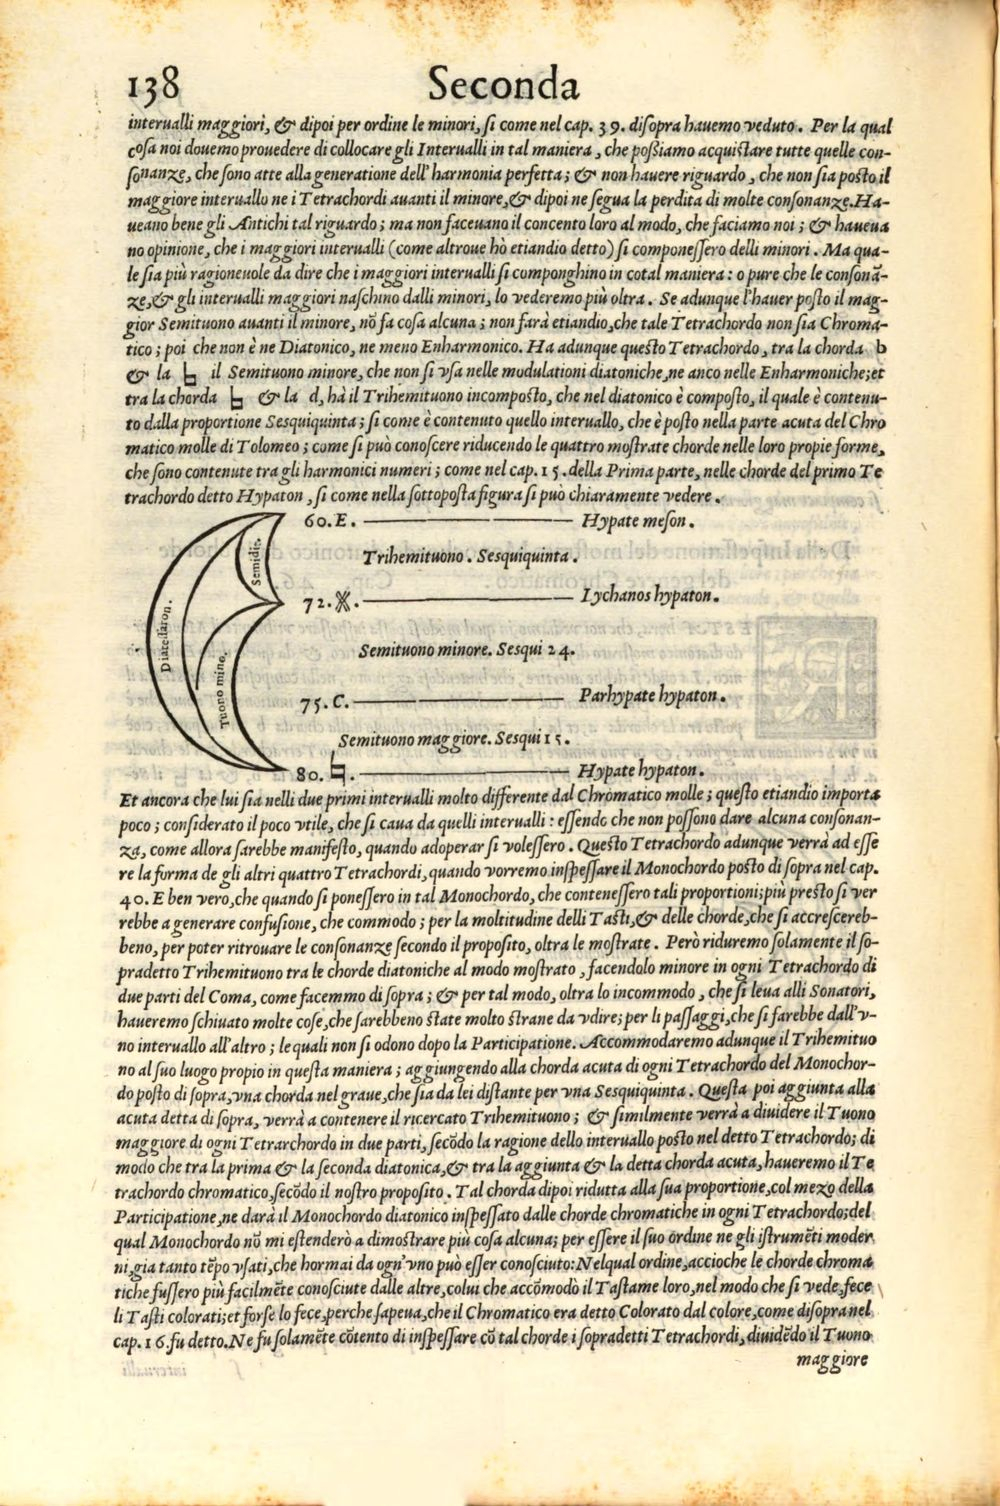 138 Seconda
interualli maggiori, & dipoi per ordine le minori, ſi come nel cap. 39. diſopra hauemo veduto. Per la qual
coſa noi douemo prouedere di collocare gli Interualli in tal maniera, che poßiamo acquiſtare tutte quelle con-
ſonanze, che ſono atte alla generatione dell'harmonia perfetta; & non hauere riguardo, che non ſia poſto il
maggiore interuallo ne i Tetrachordi auanti il minore, & dipoi ne ſegua la perdita di molte conſonanze. Ha-
ueano bene gli Antichi tal riguardo; ma non faceuano il concento loro al modo, che faciamo noi; & haueua
no opinione, che i maggiori interualli (come altroue hò etiandio detto) ſi componeſſero delli minori. Ma qua-
le ſia più ragioneuole da dire che i maggiori interualli ſi componghino in cotal maniera: o pure che le conſonā-
ze, & gli interualli maggiori naſchino dalli minori, lo vederemo più oltra. Se adunque l'hauer poſto il mag-
gior Semituono auanti il minore, nō fa coſa alcuna; non farà etiandio, che tale Tetrachordo non ſia Chroma-
tico; poi che non è ne Diatonico, ne meno Enharmonico. Ha adunque queſto Tetrachordo, tra la chorda b
& la ♮ il Semituono minore, che non ſi vſa nelle modulationi diatoniche, ne anco nelle Enharmoniche; et
tra la chorda ♮ & la d, hà il Trihemituono incompoſto, che nel diatonico è compoſto, il quale è contenu-
to dalla proportione Sesquiquinta; ſi come è contenuto quello interuallo, che è poſto nella parte acuta del Chro
matico molle di Tolomeo; come ſi può conoſcere riducendo le quattro moſtrate chorde nelle loro propie forme,
che ſono contenute tra gli harmonici numeri; come nel cap. 15. della Prima parte, nelle chorde del primo Te
trachordo detto Hypaton, ſi come nella ſottopoſta figura ſi può chiaramente vedere.
60. E. Hypate meſon.
Semidit.
Trihemituono. Sesquiquinta.
72. X. Lychanos hypaton.
Diateſſaron.
Semituono minore. Sesqui 24.
Tuono mino.
75. C. Parhypate hypaton.
Semituono maggiore. Sesqui 15.
80. ♮. Hypate hypaton.
Et ancora che lui ſia nelli due primi interualli molto differente dal Chromatico molle; queſto etiandio importa
poco; conſiderato il poco vtile, che ſi caua da quelli interualli: eſſendo che non poſſono dare alcuna conſonan-
za, come allora ſarebbe manifeſto, quando adoperar ſi voleſſero. Queſto Tetrachordo adunque verrà ad eſſe
re la forma de gli altri quattro Tetrachordi, quando vorremo inſpeſſare il Monochordo poſto di ſopra nel cap.
40. E ben vero, che quando ſi poneſſero in tal Monochordo, che conteneſſero tali proportioni; più preſto ſi ver
rebbe a generare confuſione, che commodo; per la moltitudine delli Taſti, & delle chorde, che ſi accreſcereb-
beno, per poter ritrouare le conſonanze ſecondo il propoſito, oltra le moſtrate. Però riduremo ſolamente il ſo-
pradetto Trihemituono tra le chorde diatoniche al modo moſtrato, facendolo minore in ogni Tetrachordo di
due parti del Coma, come facemmo di ſopra; & per tal modo, oltra lo incommodo, che ſi leua alli Sonatori,
haueremo ſchiuato molte coſe, che ſarebbeno ſtate molto ſtrane da vdire; per li paſſaggi, che ſi farebbe dall'v-
no interuallo all'altro; le quali non ſi odono dopo la Participatione. Accommodaremo adunque il Trihemituo
no al ſuo luogo propio in queſta maniera; aggiungendo alla chorda acuta di ogni Tetrachordo del Monochor-
do poſto di ſopra, vna chorda nel graue, che ſia da lei diſtante per vna Sesquiquinta. Queſta poi aggiunta alla
acuta detta di ſopra, verrà a contenere il ricercato Trihemituono; & ſimilmente verrà a diuidere il Tuono
maggiore di ogni Tetrarchordo in due parti, ſecōdo la ragione dello interuallo poſto nel detto Tetrachordo; di
modo che tra la prima & la ſeconda diatonica, & tra la aggiunta & la detta chorda acuta, haueremo il Te
trachordo chromatico, ſecōdo il noſtro propoſito. Tal chorda dipoi ridutta alla ſua proportione, col mezo della
Participatione, ne darà il Monochordo diatonico inſpeſſato dalle chorde chromatiche in ogni Tetrachordo; del
qual Monochordo nō mi eſtenderò a dimoſtrare più coſa alcuna; per eſſere il ſuo ordine ne gli iſtrumēti moder
ni, gia tanto tēpo vſati, che hormai da ogn'vno può eſſer conoſciuto: Nel qual ordine, accioche le chorde chroma
tiche fuſſero più facilmēte conoſciute dalle altre, colui che accōmodò il Taſtame loro, nel modo che ſi vede, fece
li Taſti colorati; et forſe lo fece, perche ſapeua, che il Chromatico era detto Colorato dal colore, come diſopra nel
cap. 16. fu detto. Ne fu ſolamēte cōtento di inſpeſſare cō tal chorde i ſopradetti Tetrachordi, diuidēdo il Tuono
maggiore